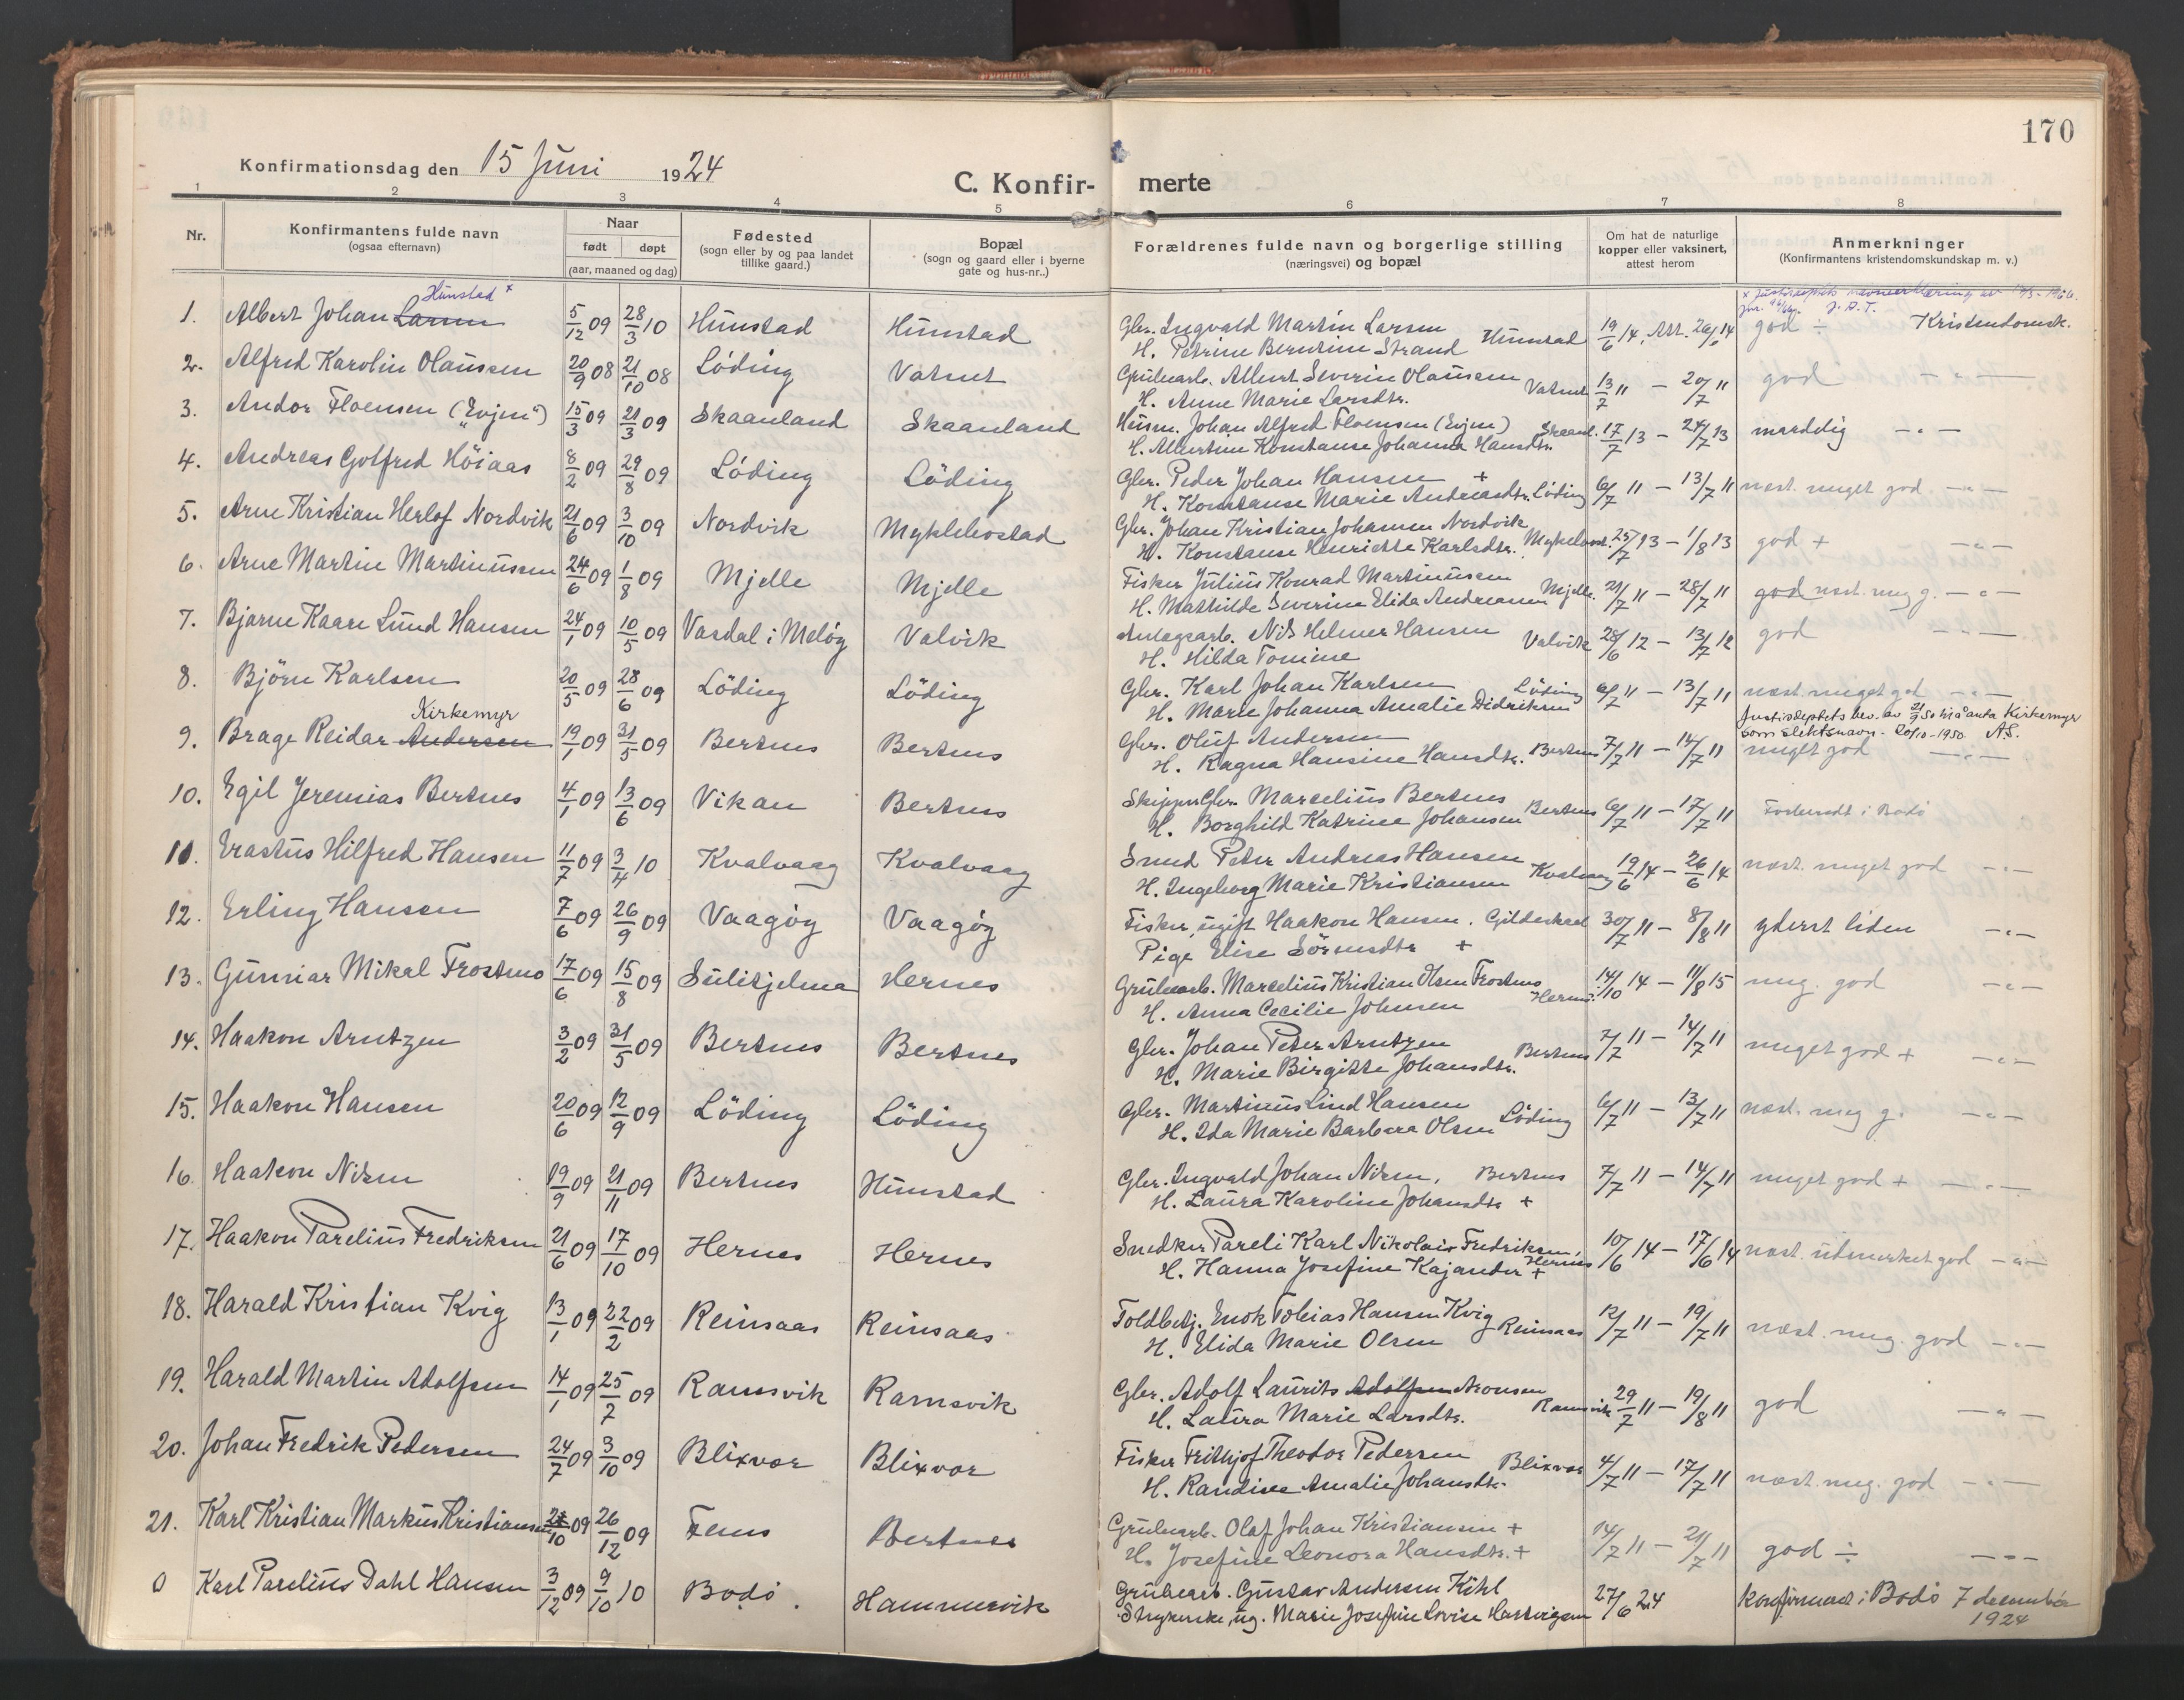 170
Konfirmationsdag den 15 Juni 1924
C. Konfir- merte
1 2 3 4 5 6 7 8
Nr.
Konfirmantens fulde navn
(ogsaa efternavn)
Naar
født døpt
(aar, maaned og dag)
Fødested
(sogn eller by og paa landet
tillike gaard.)
Bopæl
(sogn og gaard eller i byerne
gate og hus-nr..)
Forældrenes fulde navn og borgerlige stilling
(næringsvei) og bopæl
Om hat de naturlige
kopper eller vaksinert,
attest herom
Anmerkninger
(Konfirmantens kristendomskundskap m. v.)
Hunstad x
1. Albert Johan Larsen 5/12 09 28/3 10 Hunstad Hunstad Gbr. Ingvald Martin Larsen Hunstad 19/6 14, Att. 26/6 14 god ÷ Kristendomsk.
H. Petrine Berntine Strand
2. Alfred Karolin Olaussen 20/9 08 21/10 08 Löding Vatnet Grubearb. Albert Severin Olaussen Vatnet 13/7 11 — 20/7 11 god — " —
H. Anne Marie Larsdtr.
3. Andor Floensen ("Evjen") 15/3 09 21/3 09 Skaanland Skaanland Husm. Johan Alfred Floensen (Evjen) Skaanl. 17/7 13 — 24/7 13 maadelig — " —
H. Albertine Konstanse Johanna Hansdtr.
4. Andreas Gotfred Höiaas 8/2 09 29/8 09 Löding Löding Gbr. Peder Johan Hansen + 6/7 11 — 13/7 11 næst. meget god — " —
H. Konstanse Marie Andreasdtr. Löding
5. Arne Kristian Herlof Nordvik 21/6 09 3/10 09 Nordvik Myklebostad Gbr. Johan Kristian Johansen Nordvik 25/7 13 — 1/8 13 god + — " —
H. Konstanse Henriette Karlsdtr. Myklebost.
6. Arne Martin Martinussen 24/6 09 1/8 09 Mjelle Mjelle Fisker Julius Konrad Martinussen Mjelle 21/7 11 — 28/7 11 god næst. meg g. — " —
H. Mathilde Severine Elida Andreassen
7. Bjarne Kaare Lund Hansen 24/1 09 10/5 09 Vasdal i Melöy Valvik Anlægsarb. Nils Helmer Hansen Valvik 28/6 12 — 13/7 12 god — " —
H. Hilda Tomine
8. Björn Karlsen 20/5 09 28/6 09 Löding Löding Gbr. Karl Johan Karlsen Löding 6/7 11 — 13/7 11 næst. meget god — " —
H. Marie Johanna Amalie Didriksen
Kirkemyr
Justisdeptets bev. av 21/9 50 til å anta Kirkemyr
som slektsnavn. 20/10-1950 A.S.
9. Brage Reidar Andersen 19/1 09 31/5 09 Bertnes Bertnes Gbr. Oluf Andersen Bertnes 7/7 11 — 14/7 11 meget god — " —
H. Ragna Hansine Hansdtr.
10. Egil Jeremias Bertnes 4/1 09 13/6 09 Vikan Bertnes Skipper Gbr. Marselius Bertnes Bertnes 6/7 11 — 17/7 11 Forberedt i Bodö
H. Borghild Katrine Johansen
11. Erastus Hilfred Hansen 11/7 09 3/4 10 Kvalvaag Kvalvaag Smed Peter Andreas Hansen Kvalvaag 19/6 14 — 26/6 14 næst. meget god — " —
H. Ingeborg Marie Kristiansen
12. Erling Hansen 7/6 09 26/9 09 Vaagöy Vaagöy Fisker, ugift Haakon Hansen. Gildeskaal 30/7 11 — 8/8 11 yderst liden — " —
Pige Elise Sörensdtr +
13. Gunnar Mikal Frostmo 17/6 09 15/8 09 Sulitjelma Hernes Grubearb. Marselius Kristian Olsen Frostmo Hernes 14/10 14 — 11/8 15 meg. god — " —
H. Anna Cecilie Johnsen
14. Haakon Arntzen 3/2 09 31/5 09 Bertnes Bertnes Gbr. Johan Peter Arntzen Bertnes 7/7 11 — 14/7 11 meget god + — " —
H. Marie Birgitte Johansdtr.
15. Haakon Hansen 20/6 09 12/9 09 Löding Löding Gbr. Martinus Lind Hansen Löding 6/7 11 — 13/7 11 næst. meg g. — " —
H. Ida Marie Barbara Olsen
16. Haakon Nilsen 19/9 09 21/11 09 Bertnes Hunstad Gbr. Ingvald Johan Nilsen, Bertnes 7/7 11 — 14/7 11 meget god + — " —
H. Laura Karoline Johansdtr +
17. Haakon Parelius Fredriksen 21/6 09 17/10 09 Hernes Hernes Snedker Pareli Karl Nikolais Fredriksen, Hernes 10/6 14 — 17/6 14 næst. udmerket god — " —
H. Hanna Josefine Kajander +
18. Harald Kristian Kvig 13/1 09 22/2 09 Reinsaas Reinsaas Toldbetj. Enok Tobias Hansen Kvig Reinsaas 12/7 11 — 19/7 11 næst. meg. god — " —
H. Elida Marie Olsen
19. Harald Martin Adolfsen 14/1 09 25/7 09 Ramsvik Ramsvik Gbr. Adolf Laurits Adolfsen Aronsen Ramsvik 29/7 11 — 19/8 11 god — " —
H. Laura Marie Larsdtr.
20. Johan Fredrik Pedersen 24/7 09 3/10 09 Blixvær Blixvær Fisker Frithjof Theodor Pedersen Blixvær 4/7 11 — 17/7 11 næst. meg. god — " —
H. Randine Amalie Johansdtr.
21. Karl Kristian Markus Kristiansen /10 09 26/12 09 Fenes Bertnes Grubearb. Olaf Johan Kristiansen + 14/7 11 — 21/7 11 god ÷ — " —
H. Josefine Leonora Hansdtr. +
0 Karl Parelius Dahl Hansen 3/12 09 9/10 10 Bodö. Hammervik Grubearb. Gustav Andersen Kihl 27/6 24 Konfirmert i Bodö 7 december
Strykerske, ug. Marie Josefine Lovise Hartvigsen 1924